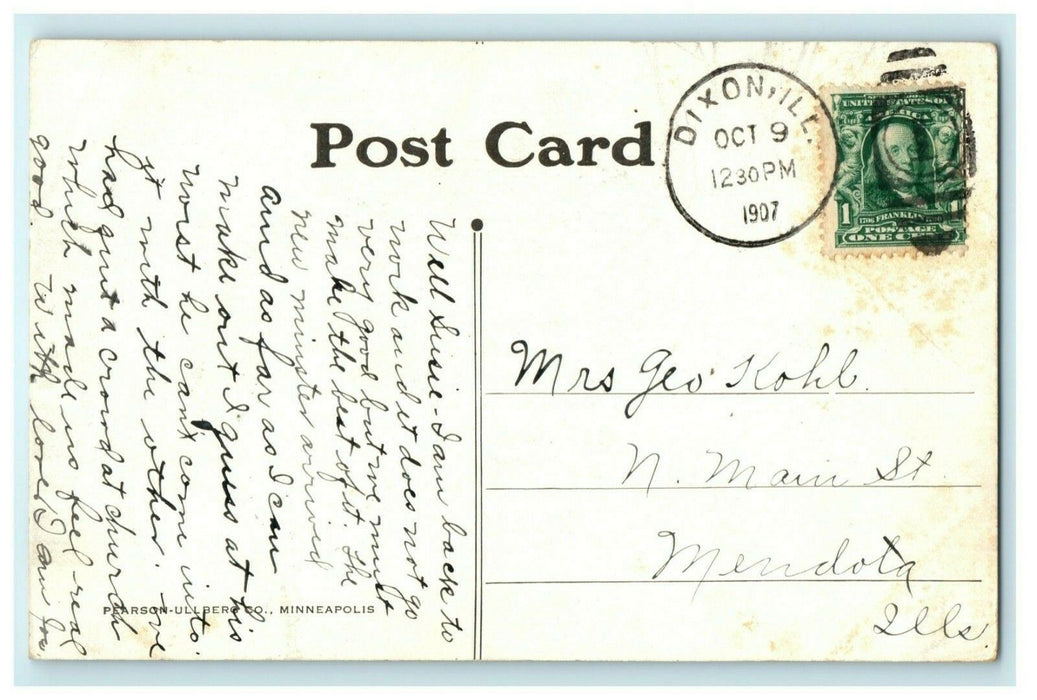 Post Card
DIXON, ILL.
OCT 9
1230 PM
1907
UNITED STATES OF
AMERICA
1 1
1706 FRANKLIN 1790
POSTAGE
ONE CENT
Well Susie - I am back to
work and it does not go
very good but we must
make the best of it. The
new minister arrived
and as far as I can
make out I guess at his
worst he can't come into
it with the other. We
had quit a crowd at church
which made us feel real
good With love I am
Mrs Geo Kohl.
N. Main St.
Mendota
Ills
PEARSON-ULLBERG CO., MINNEAPOLIS